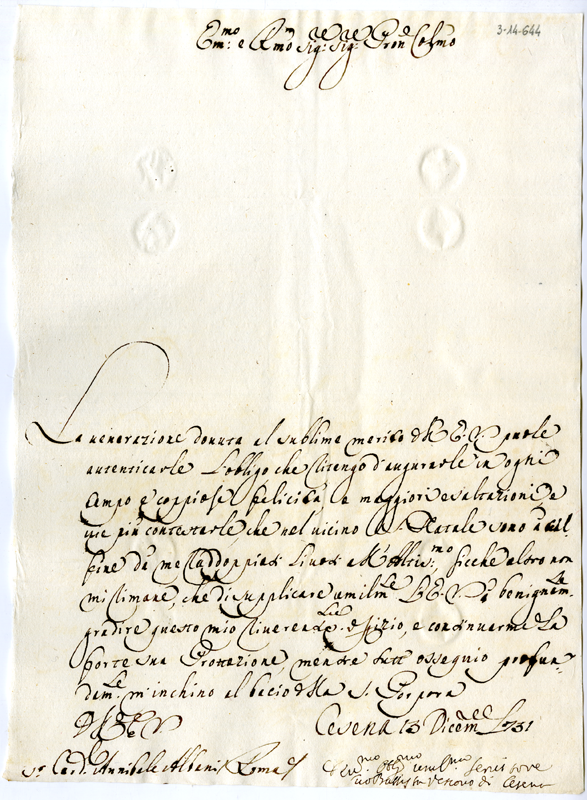 3-14-644
Em:mo e Rmo Sig:re Sig:re Pron Colmo
La venerazione dovuta al sublime merito dell' E. V. puole
autenticarle l'obligo che ritengo d'augurarle in ogni
tempo e coppiose felicità e maggiori esaltazioni e
vie più contestarle che nel vicino S. Natale sono a tal
fine da me raddoppiati i voti a Altis:mo, sicche altro non
mi rimane, che di supplicare umilm:te l'E. V. benignam:te
gradire questo mio riveren:le ofizio, e continuarmi la
forte sua Protezione, mentre tutt' ossequio profun-
dam:te m'inchino al bacio della S. Porpora
Di V. E.
Cesena 13 Dicem:e 1731
Sr. Card. Annibale Albani Roma
umil:mo servitore
Gio Batta Vescovo di Cesena